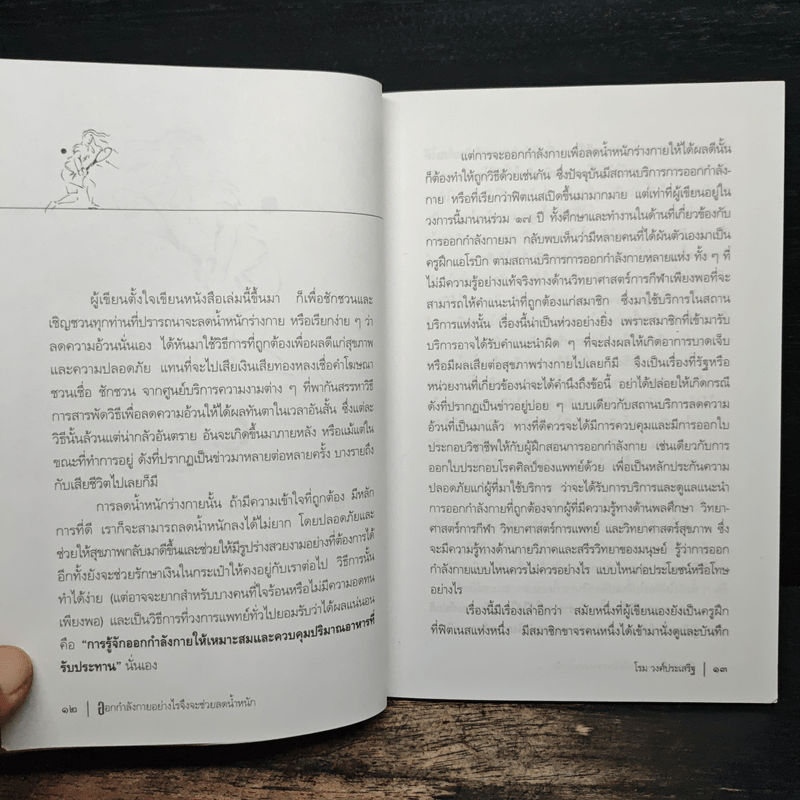 ผู้เขียนตั้งใจเขียนหนังสือเล่มนี้ขึ้นมา ก็เพื่อชักชวนและ
เชิญชวนทุกท่านที่ปรารถนาจะลดน้ำหนักร่างกาย หรือเรียกง่าย ๆ ว่า
ลดความอ้วนนั่นเอง ได้หันมาใช้วิธีการที่ถูกต้องเพื่อผลดีแก่สุขภาพ
และความปลอดภัย แทนที่จะไปเสียเงินเสียทองหลงเชื่อคำโฆษณา
ชวนเชื่อ ชักชวน จากศูนย์บริการความงามต่าง ๆ ที่พากันสรรหาวิธี
การสารพัดวิธีเพื่อลดความอ้วนให้ได้ผลทันตาในเวลาอันสั้น ซึ่งแต่ละ
วิธีนั้นล้วนแต่น่ากลัวอันตราย อันจะเกิดขึ้นมาภายหลัง หรือแม้แต่ใน
ขณะที่ทำการอยู่ ดังที่ปรากฏเป็นข่าวมาหลายต่อหลายครั้ง บางรายถึง
กับเสียชีวิตไปเลยก็มี
การลดน้ำหนักร่างกายนั้น ถ้ามีความเข้าใจที่ถูกต้อง มีหลัก
การที่ดี เราก็จะสามารถลดน้ำหนักลงได้ไม่ยาก โดยปลอดภัยและ
ช่วยให้สุขภาพกลับมาดีขึ้นและช่วยให้มีรูปร่างสวยงามอย่างที่ต้องการได้
อีกทั้งยังจะช่วยรักษาเงินในกระเป๋าให้คงอยู่กับเราต่อไป วิธีการนั้น
ทำได้ง่าย (แต่อาจจะยากสำหรับบางคนที่ใจร้อนหรือไม่มีความอดทน
เพียงพอ) และเป็นวิธีการที่วงการแพทย์ทั่วไปยอมรับว่าได้ผลแน่นอน
คือ “การรู้จักออกกำลังกายให้เหมาะสมและควบคุมปริมาณอาหารที่
รับประทาน” นั่นเอง
๑๒ | ออกกำลังกายอย่างไรจึงจะช่วยลดน้ำหนัก
แต่การจะออกกำลังกายเพื่อลดน้ำหนักร่างกายให้ได้ผลดีนั้น
ก็ต้องทำให้ถูกวิธีด้วยเช่นกัน ซึ่งปัจจุบันมีสถานบริการการออกกำลัง-
กาย หรือที่เรียกว่าฟิตเนสเปิดขึ้นมามากมาย แต่เท่าที่ผู้เขียนอยู่ใน
วงการนี้มานานร่วม ๑๗ ปี ทั้งศึกษาและทำงานในด้านที่เกี่ยวข้องกับ
การออกกำลังกายมา กลับพบเห็นว่ามีหลายคนที่ได้ผันตัวเองมาเป็น
ครูฝึกแอโรบิก ตามสถานบริการการออกกำลังกายหลายแห่ง ทั้ง ๆ ที่
ไม่มีความรู้อย่างแท้จริงทางด้านวิทยาศาสตร์การกีฬาเพียงพอที่จะ
สามารถให้คำแนะนำที่ถูกต้องแก่สมาชิก ซึ่งมาใช้บริการในสถาน
บริการแห่งนั้น เรื่องนี้น่าเป็นห่วงอย่างยิ่ง เพราะสมาชิกที่เข้ามารับ
บริการอาจได้รับคำแนะนำผิด ๆ ที่จะส่งผลให้เกิดอาการบาดเจ็บ
หรือมีผลเสียต่อสุขภาพร่างกายไปเลยก็มี จึงเป็นเรื่องที่รัฐหรือ
หน่วยงานที่เกี่ยวข้องน่าจะได้คำนึงถึงข้อนี้ อย่าได้ปล่อยให้เกิดกรณี
ดังที่ปรากฏเป็นข่าวอยู่บ่อย ๆ แบบเดียวกับสถานบริการลดความ
อ้วนที่เป็นมาแล้ว ทางที่ดีควรจะได้มีการควบคุมและมีการออกใบ
ประกอบวิชาชีพให้กับผู้ฝึกสอนการออกกำลังกาย เช่นเดียวกับการ
ออกใบประกอบโรคศิลป์ของแพทย์ด้วย เพื่อเป็นหลักประกันความ
ปลอดภัยแก่ผู้ที่มาใช้บริการ ว่าจะได้รับการบริการและดูแลแนะนำ
การออกกำลังกายที่ถูกต้องจากผู้ที่มีความรู้ทางด้านพลศึกษา วิทยา-
ศาสตร์การกีฬา วิทยาศาสตร์การแพทย์ และวิทยาศาสตร์สุขภาพ ซึ่ง
จะมีความรู้ทางด้านกายวิภาคและสรีรวิทยาของมนุษย์ รู้ว่าการออก
กำลังกายแบบไหนควรไม่ควรอย่างไร แบบไหนก่อประโยชน์หรือโทษ
อย่างไร
เรื่องนี้มีเรื่องเล่าอีกว่า สมัยหนึ่งที่ผู้เขียนเองยังเป็นครูฝึก
ที่ฟิตเนสแห่งหนึ่ง มีสมาชิกขาจรคนหนึ่งได้เข้ามานั่งดูและบันทึก
โรม วงศ์ประเสริฐ | ๑๓